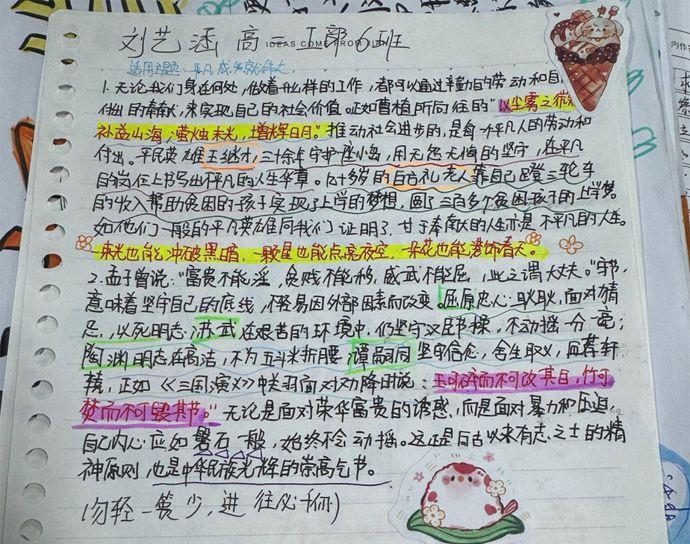 刘艺涵 高二 1部6班
IDEAS COME FROM LIFE
适用主题：平凡成就伟大
1. 无论我们身在何处，做着什么样的工作，都可以通过辛勤的劳动和自
付出的奉献，来实现自己的社会价值。正如曹植所向往的"以尘雾之微
补益山海，萤烛末光，增辉日月。"推动社会进步的，是每一个平凡人的劳动和
付出。平民英雄王继才，三十余年守护一座小岛，用无怨无悔的坚守，在平凡
的岗位上书写出不平凡的人生华章。几十多岁的白方礼老人靠自己蹬三轮车
的收入帮助贫困的孩子实现了上学的梦想，圆了三百多个贫困孩子的上学梦。
如他们一般的平凡英雄同我们证明了，甘于奉献的人生亦是不平凡的人生。
末光也能冲破黑暗，一颗星也能点亮夜空，一朵花也能装饰春天。
2. 孟子曾说："富贵不能淫，贫贱不能移，威武不能屈，此之谓大丈夫。"气节，
意味着坚守自己的底线，不轻易因外部因素而改变。屈原忠心耿耿，面对
，以死明志；苏武在艰苦的环境中，仍坚守汉臣节操，不动摇一分一毫；
陶渊明志在高洁，不为五斗米折腰；谭嗣同坚守信念，舍生取义，血荐轩
辕，正如《三国演义》中关羽面对劝降时说：玉可碎而不可改其白，竹可
焚而不可毁其节。"无论是面对荣华富贵的诱惑，而是面对暴力和压迫，
自己内心应如磐石一般，始终不会动摇。这正是自古以来有志之士的精
神原则，也是中华民族光辉的崇高气节。
(勿轻一篑少，进往必千仞)